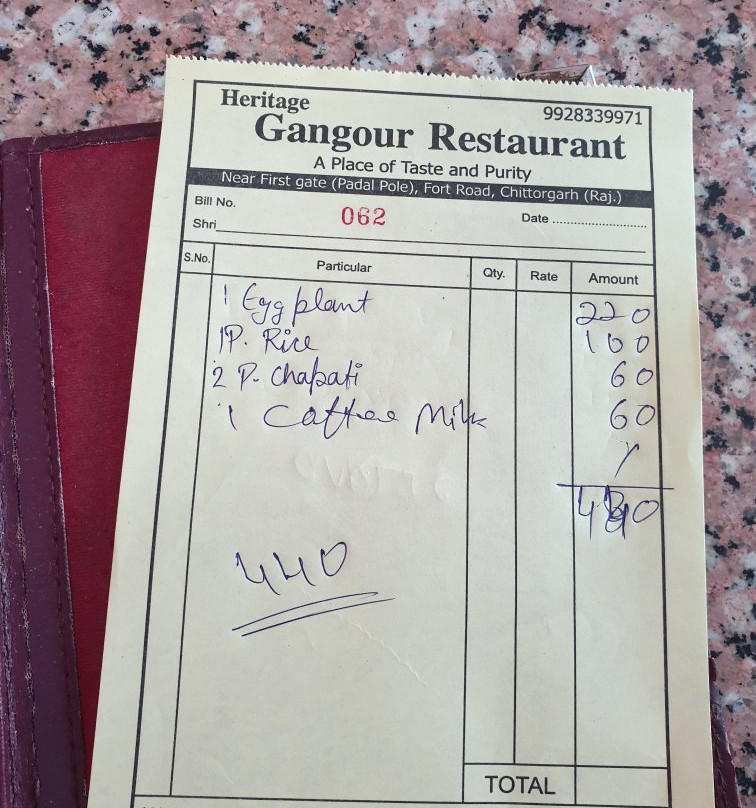 Heritage
9928339971
Gangour Restaurant
A Place of Taste and Purity
Near First gate (Padal Pole), Fort Road, Chittorgarh (Raj.)
Bill No. 062 Date ..........................
Shri
S.No. Particular Qty. Rate Amount
1 Eggplant 220
1 P. Rice 100
2 P. Chapati 60
1 Coffee Milk 60
440
440
TOTAL